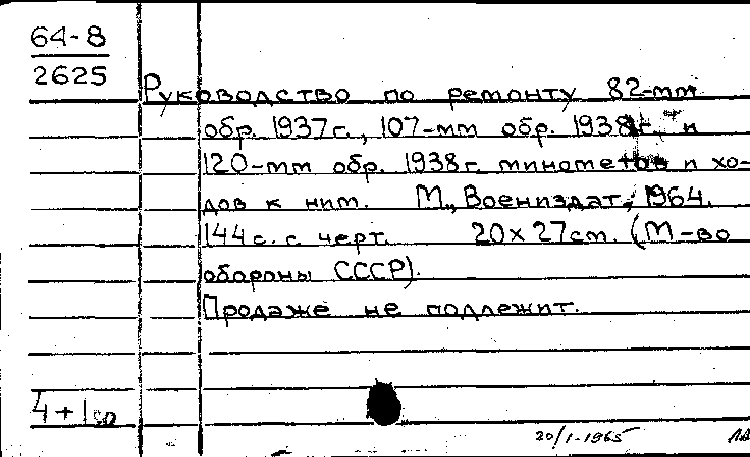 64-8
2625
Руководство по ремонту 82-мм
обр. 1937 г., 107-мм обр. 1938 г. и
120-мм обр. 1938 г. минометов и хо-
дов к ним. М., Воениздат, 1964.
144 с. с черт. 20×27 см. (М-во
обороны СССР).
Продаже не подлежит.
4+1
20/1-1965